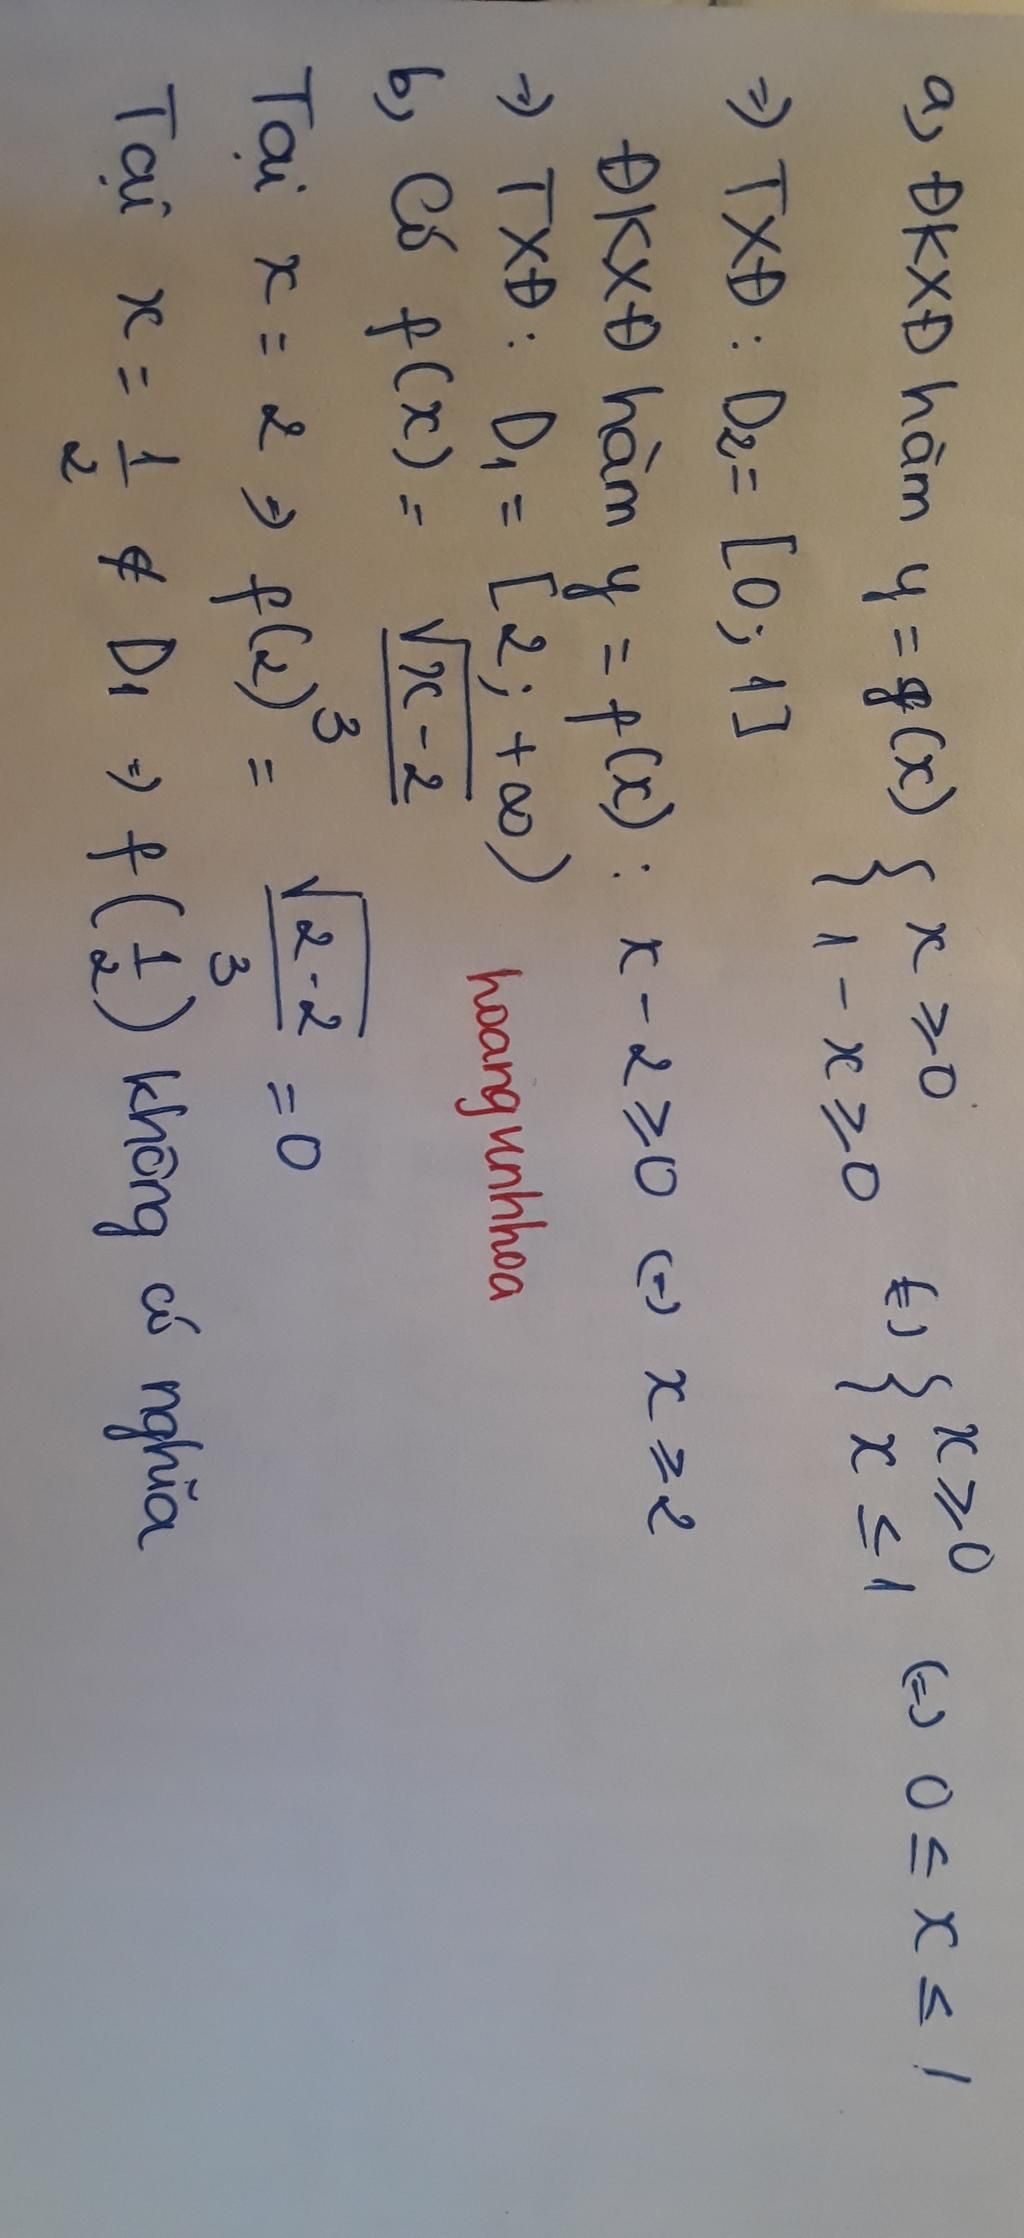 a, ĐKXĐ hàm y = g(x) { x ≥ 0 1 - x ≥ 0 (=) { x ≥ 0 x ≤ 1 (=) 0 ≤ x ≤ 1
=) TXĐ : D2 = [0; 1]
ĐKXĐ hàm y = f(x) : x - 2 ≥ 0 (=) x ≥ 2
=) TXĐ : D1 = [2; +∞)
hoangunhhoa
b, Có f(x) = √(x - 2) / 3
Tại x = 2 =) f(2) = √(2 - 2) / 3 = 0
Tại x = 1/2 ∉ D1 =) f(1/2) không có nghĩa